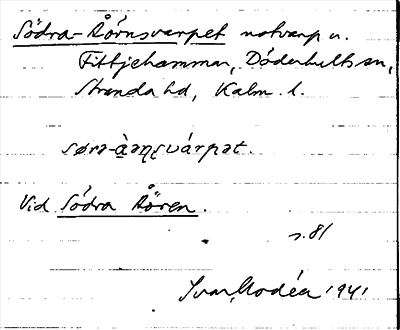 Södra-Åörnsvarpet notvarp u.
Fittjehammar, Döderhults sn,
Stranda hd, Kalm. l.
Vid Södra Åören.
s. 81
Ivar Modéer 1941